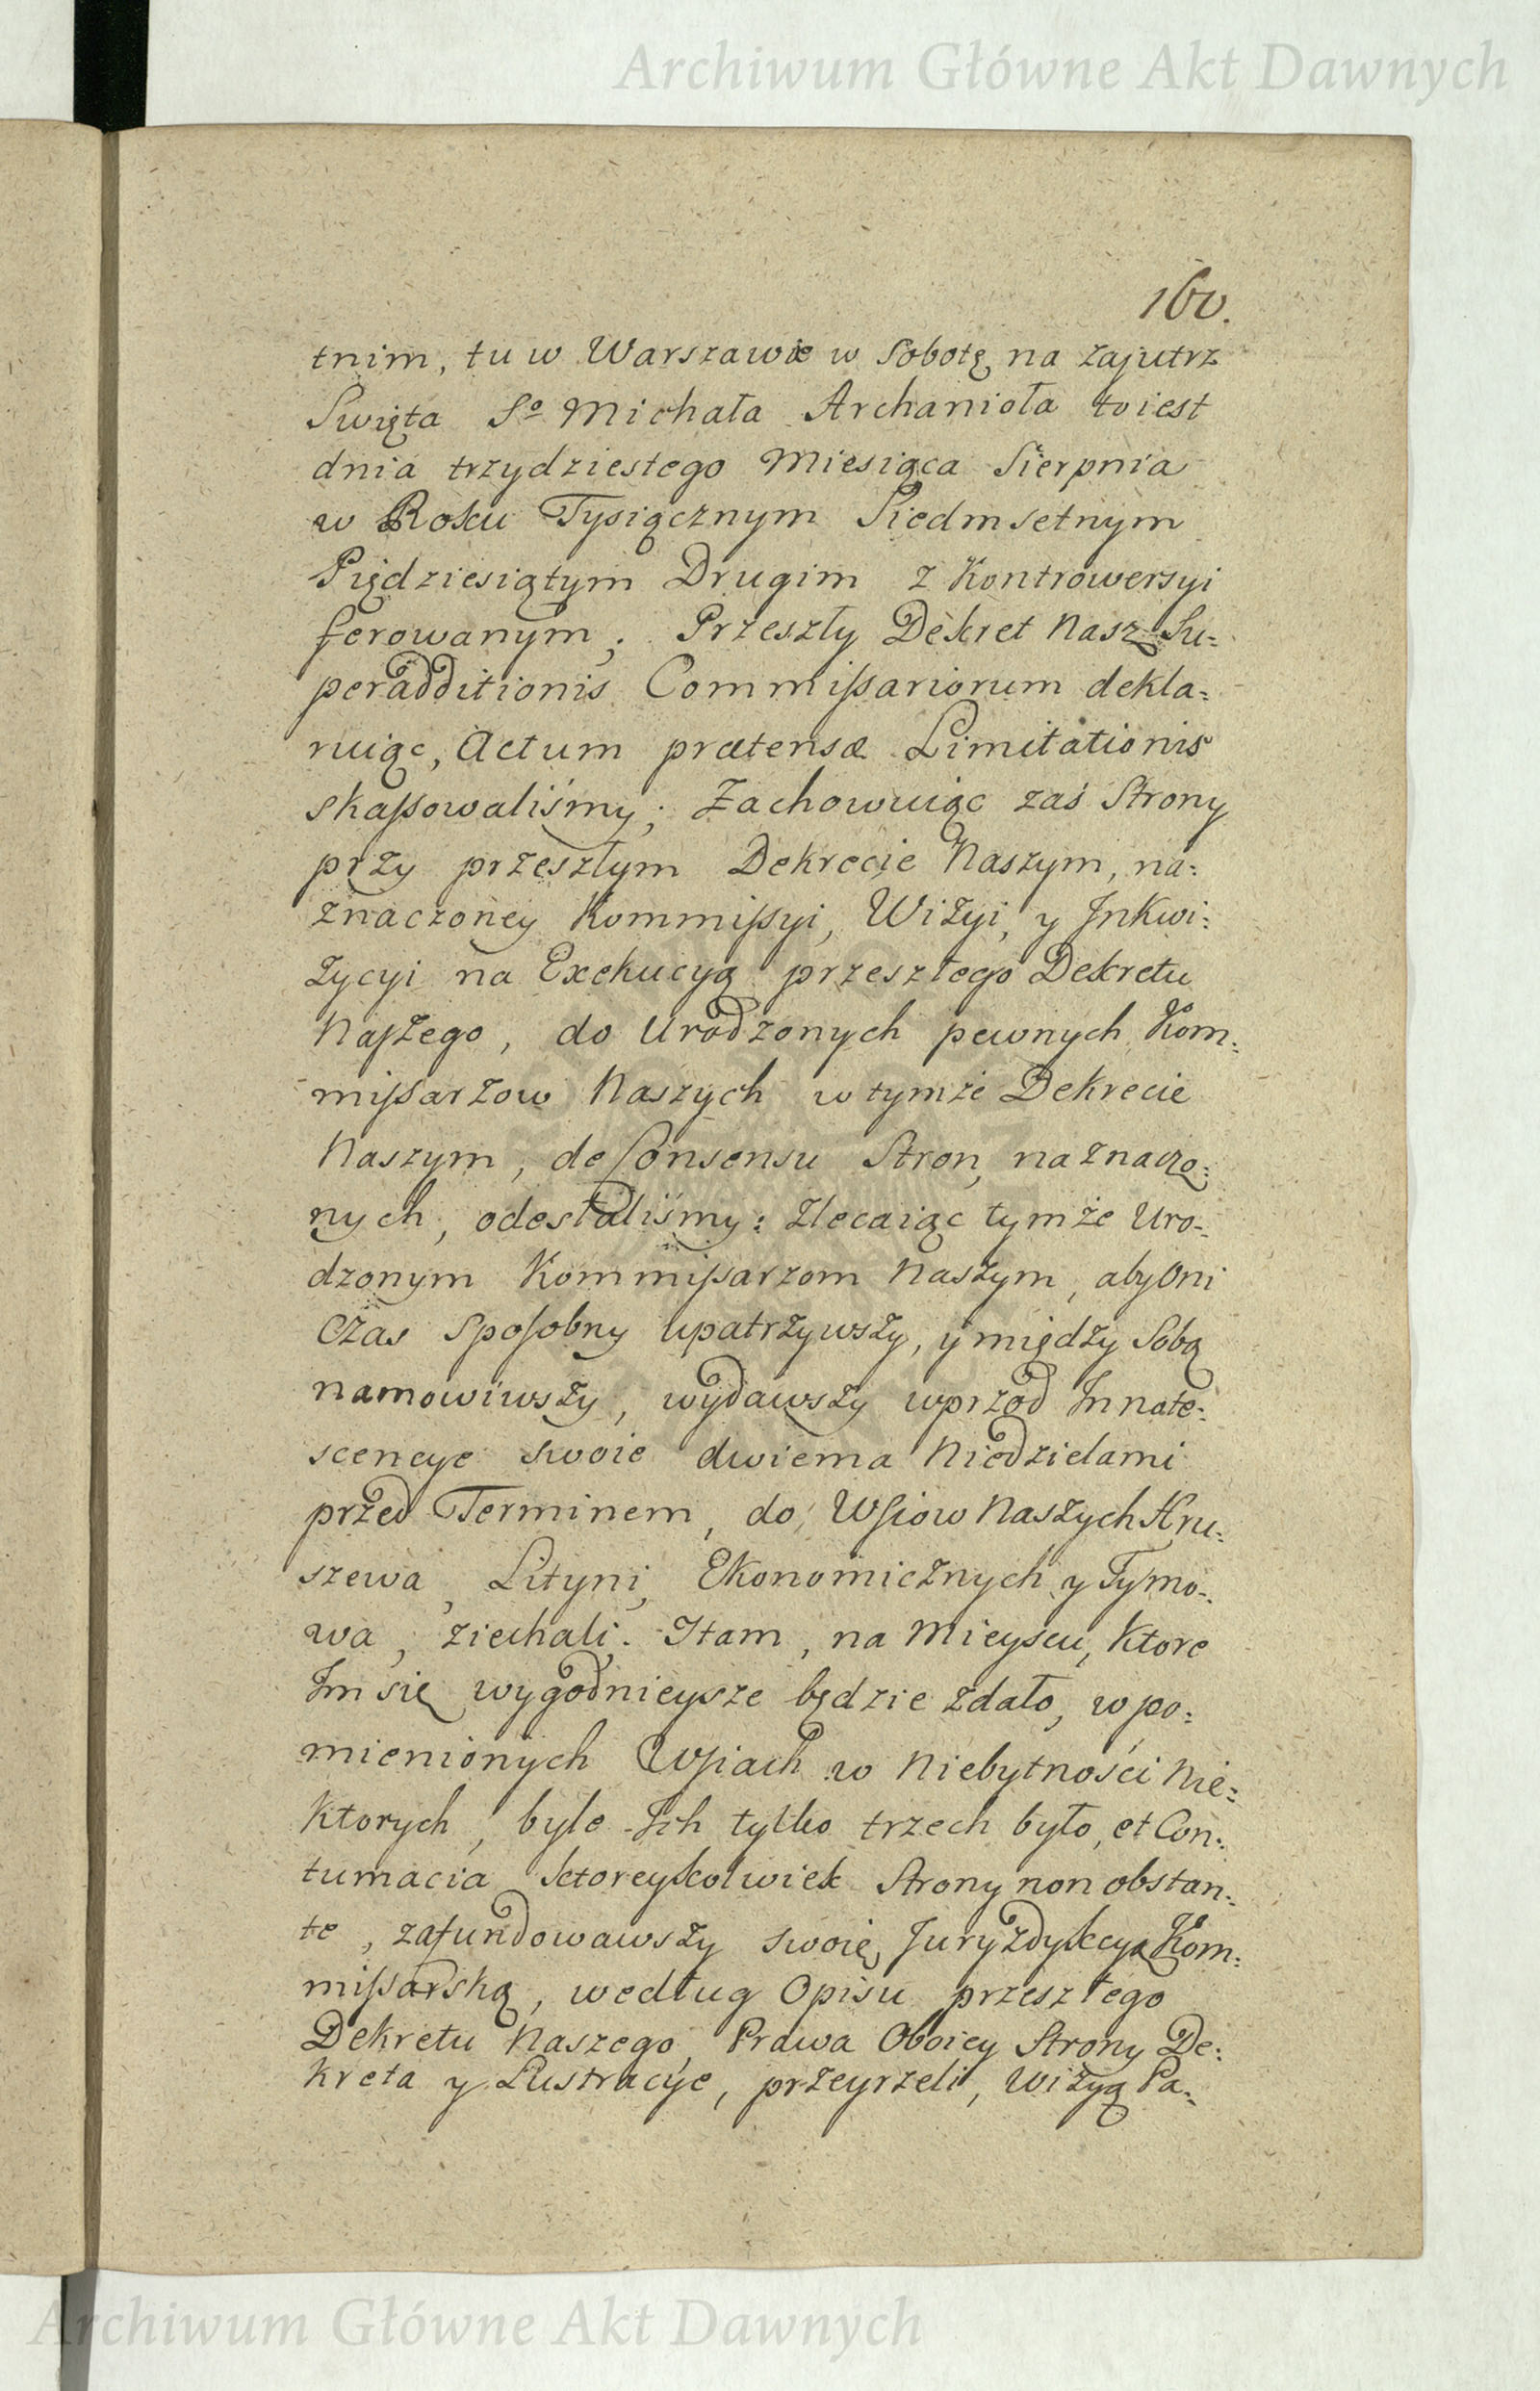 Archiwum Główne Akt Dawnych
160.
tnim, tu w Warszawie w Sobotę na zajutrz
Swięta S<sup>o</sup> Michała Archanioła toiest
dnia trzydziestego Miesiąca Sierpnia
w Roku Tysiącznym Siedmsetnym
Piędziesiątym Drugim z Kontrowersyi
ferowanym; Przeszły Dekret Nasz Su=
peradditionis Commißariorum dekla=
ruiąc, Actum prætensæ Limitationis
skaßowaliśmy; Zachowuiąc zaś Strony
przy przeszłym Dekrecie Naszym, na=
znaczoney Kommißyi, Wizyi, y Jnkwi=
zycyi na Exekucyą przeszłego Dekretu
Naſzego, do Urodzonych pewnych Kom=
mißarzow Naszych w tymże Dekrecie
Naszym, de Consensu Stron, naznaczo=
nych, odesłaliśmy: Zlecaiąc tymże Uro=
dzonym Kommißarzom Naszym, aby Oni
Czas Spoſobny upatrzywszy, y między Sobą
namowiwszy, wydawszy wprzod Jnnote=
scencye swoie dwiema Niedzielami
przed Terminem, do Wſiow Naszych Kru=
szewa, Lityni, Ekonomicznych y Tymo=
wa, ziechali. Jtam, na Mieyscu, Ktore
Jm się wygodnieysze będzie zdało, w po=
mienionych Wſiach w Niebytności Nie=
Ktorych, byle Jch tylko trzech było, et Con=
tumacia ktoreykolwiek Strony non obstan=
te, zafundowawszy swoię Juryzdykcyą Kom=
mißarską, według Opisu przeszłego
Dekretu Naszego, Prawa Oboiey Strony De=
kreta y Lustracye, przeyrzeli, Wizyą Pa=
Archiwum Główne Akt Dawnych